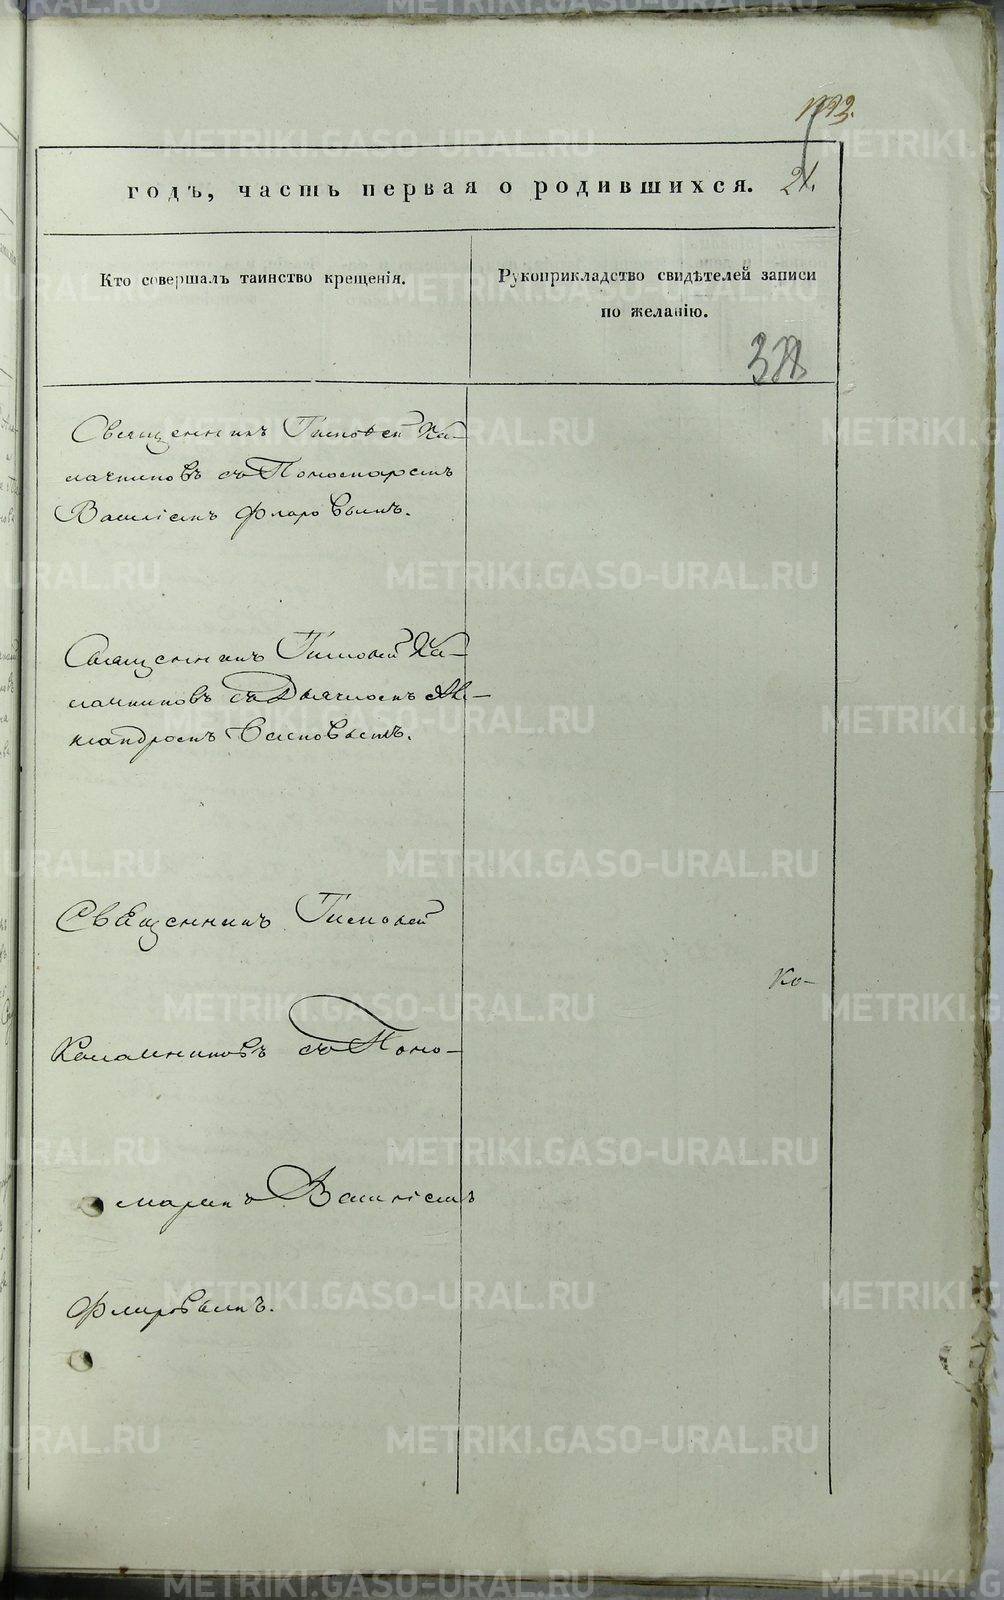 годъ, часть первая о родившихся. 21.
Кто совершалъ таинство крещенія.
Рукоприкладство свидѣтелей записи
по желанію.
Священникъ Тимоѳей Ка-
лачниковъ съ Пономаремъ
Василіемъ Флоровымъ.
Священникъ Тимоѳей Ка-
лачниковъ съ Дьячкомъ Але-
ксандромъ
Священникъ Тимоѳей
Ко-
Калачниковъ съ Поно-
маремъ Василіемъ
Флоровымъ.
METRIKI.GASO-URAL.RU